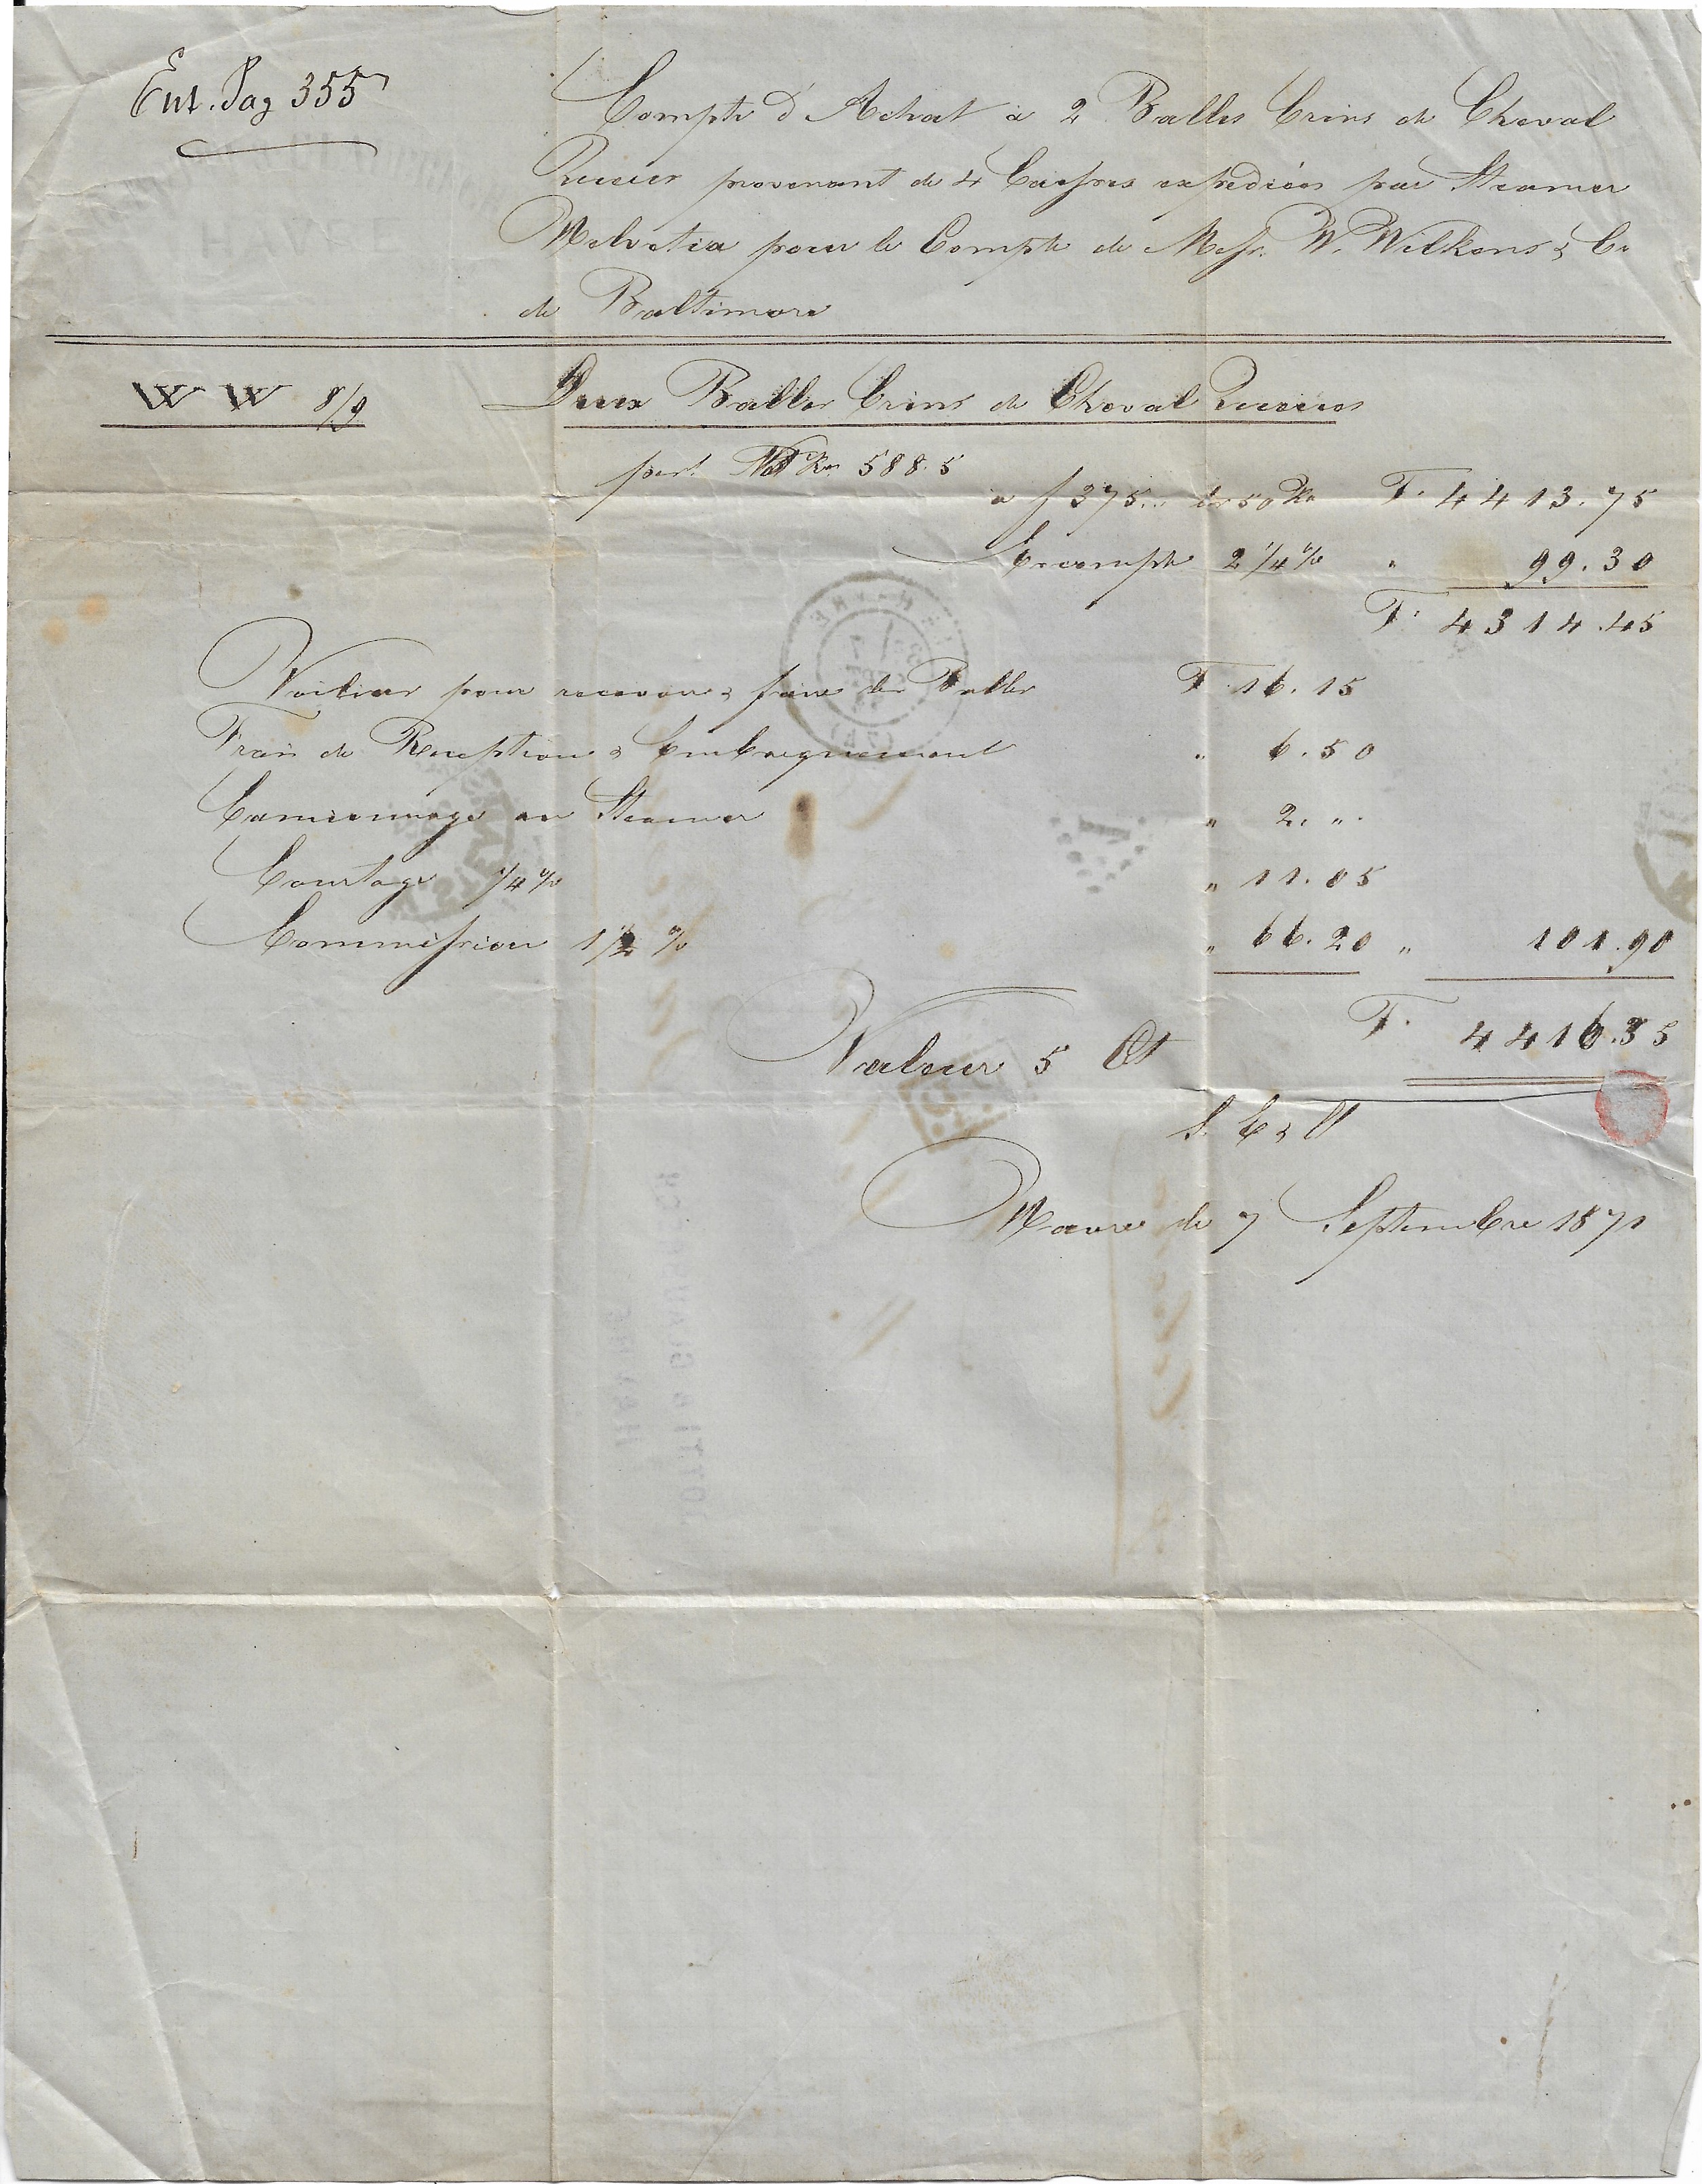 Ent. Pag 355
Compte d'Achat à 2 Balles Crins de Cheval
Queues provenant de 4 Caisses expediées par Steamer
Helvetia pour le Compte de Mess. W. Wilkens & Co
de Baltimore
W W 8/9 Deux Balles Crins de Cheval Queues
pest Net Ko 588.5
a f 375.. les 50 Ko F. 4413.75
Escompte 2 1/4 % " 99.30
F. 4314.45
Voilier pour recevoir & faire les Balles F. 16.15
Frais de Reception & Embarquement " 6.50
Camionnage au Steamer " 2. ".
Courtage 1/4 % " 11.05
Commission 1 1/2 % " 66.20 " 101.90
F. 4416.35
Valeur 5 Ct
S. E & O
Havre le 7 Septembre 1871